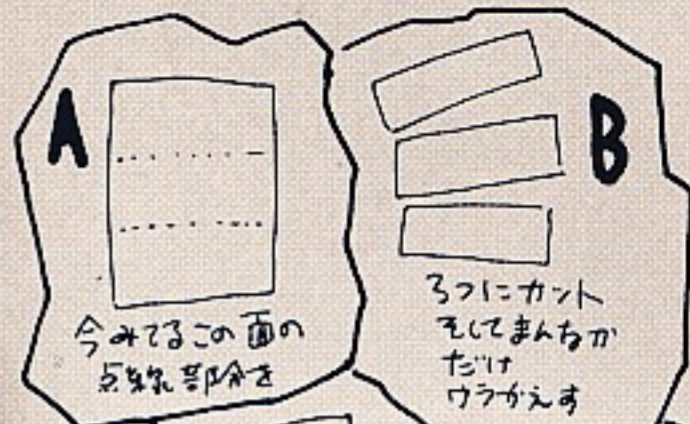 A
今みてるこの面の
点線部分を
B
3つにカット
そしてまんなか
だけ
ウラがえす